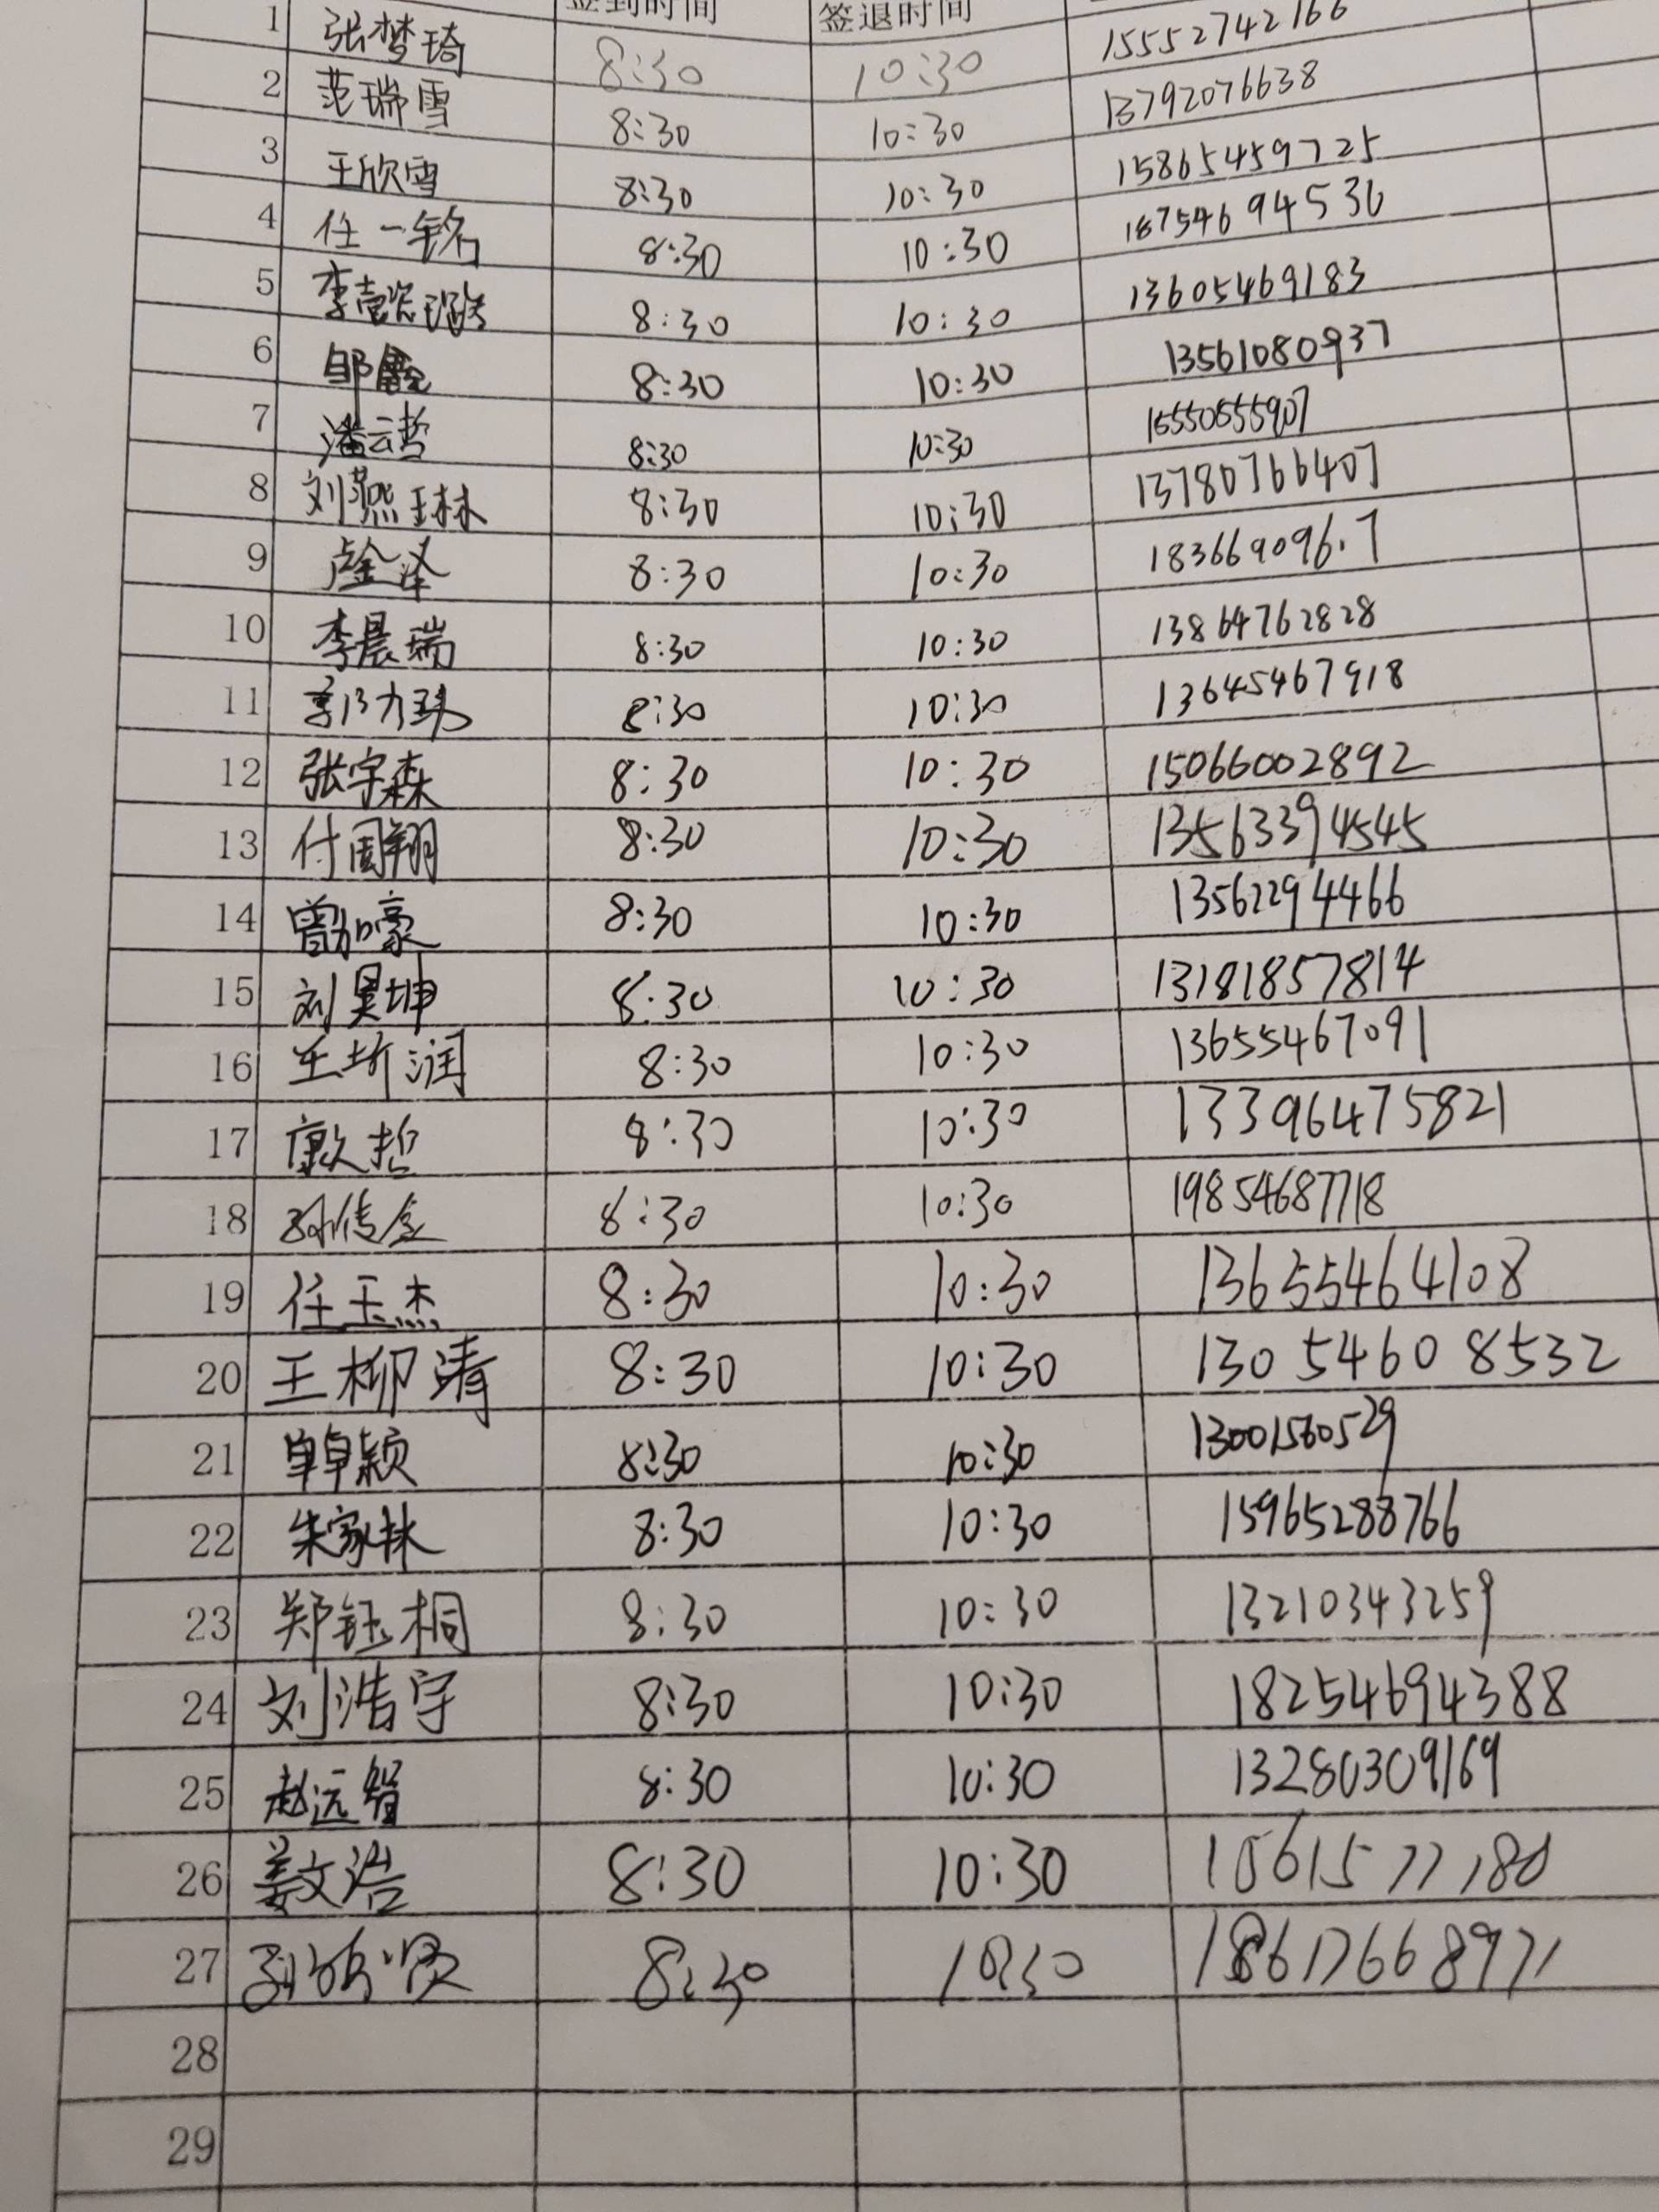 签到时间 签退时间
1 张梦琦 8:30 10:30 15552742166
2 范瑞雪 8:30 10:30 13792076638
3 王欣雪 8:30 10:30 15865459725
4 任一铭 8:30 10:30 18754694536
5 李 8:30 10:30 13605469183
6 邹 8:30 10:30 13561080937
7 潘云哲 8:30 10:30 15550555907
8 刘燕琳 8:30 10:30 13780766407
9 8:30 10:30
10 李晨瑞 8:30 10:30 13864762828
11 8:30 10:30 13645467918
12 张宇森 8:30 10:30 15066002892
13 付周翔 8:30 10:30 13563394545
14 曾加豪 8:30 10:30 13562294466
15 刘昊坤 8:30 10:30 13181857814
16 王圻润 8:30 10:30 13655467091
17 哲 8:30 10:30 13396475821
18 孙传金 8:30 10:30 19854687718
19 任玉杰 8:30 10:30 13655464108
20 王柳清 8:30 10:30 13054608532
21 单卓颖 8:30 10:30 13001560529
22 朱家林 8:30 10:30 15965288766
23 郑钰桐 8:30 10:30 13210343259
24 刘浩宇 8:30 10:30 18254694388
25 赵远智 8:30 10:30 13280309169
26 姜文浩 8:30 10:30
27 8:30 10:30
28
29